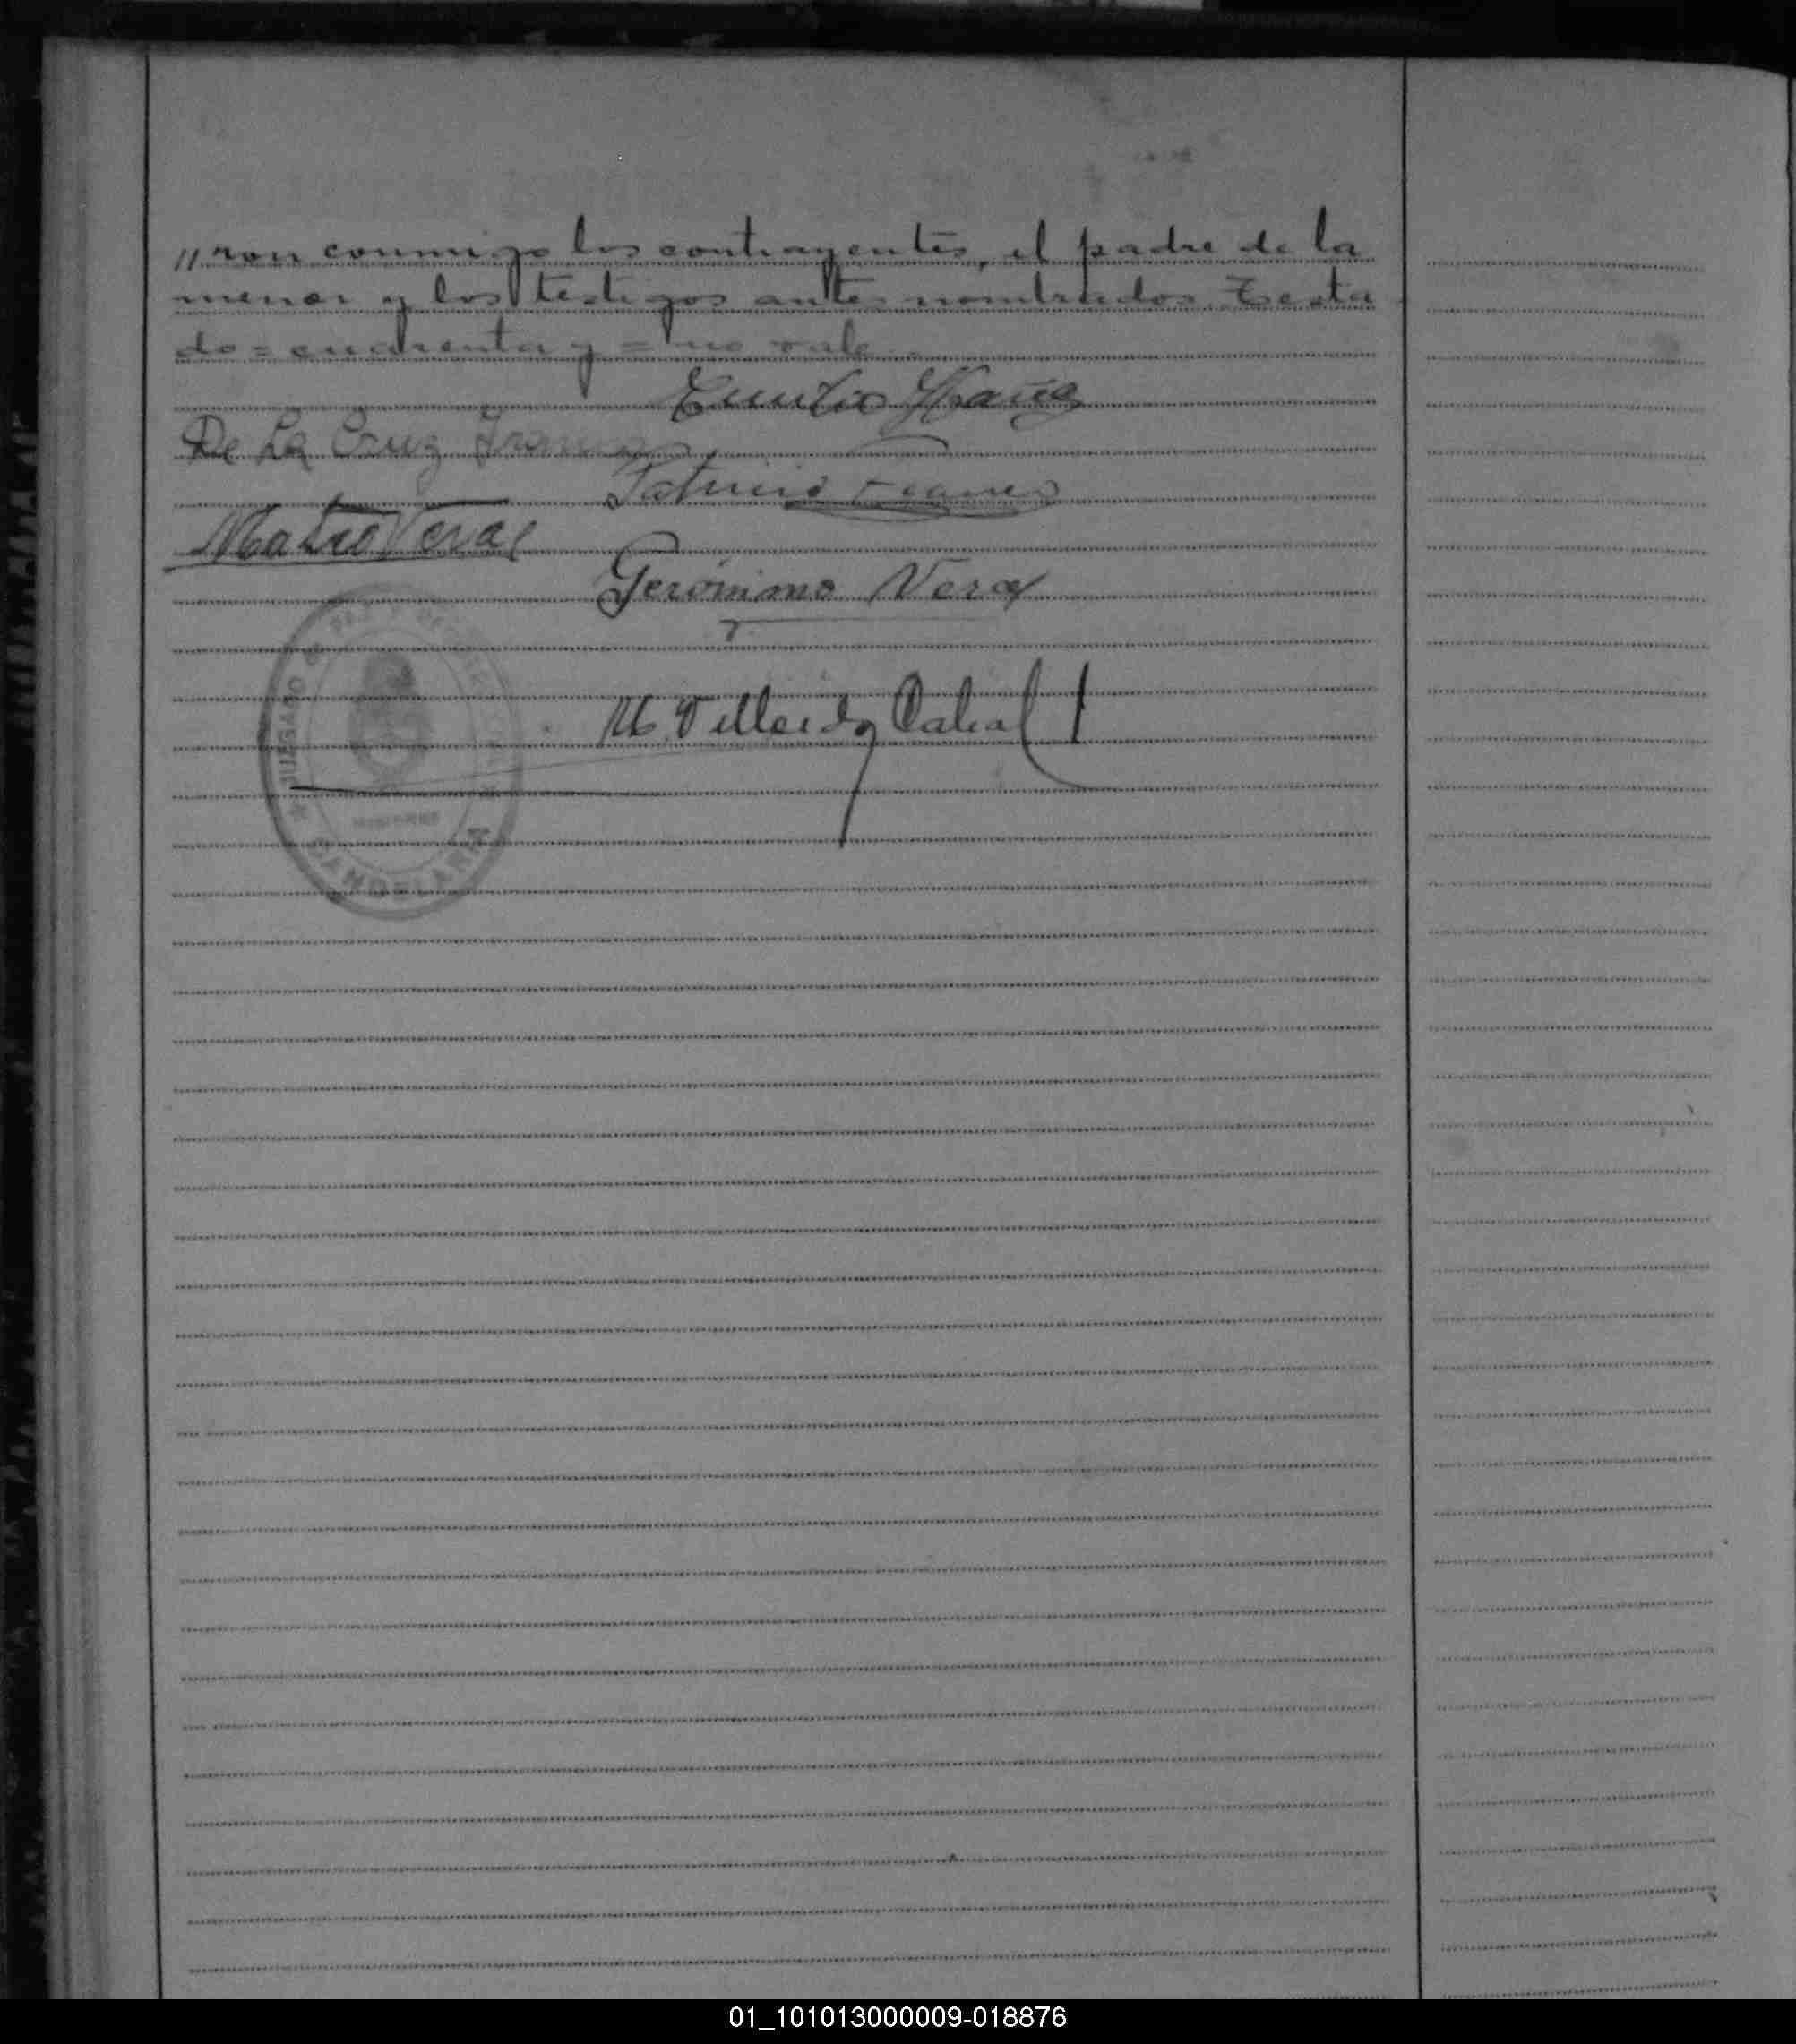 "ron conmigo los contrayentes, el padre de la
menor y los testigos antes nombrados. Testa
do = cuadrenta y = no vale.
Emilio Ybañez
De La Cruz Franco
Patricio Franco
Mateo Veral
Gerónimo Vera
M. Villordo Cabral
JUZGADO DE PAZ
CANDELARIA
01_101013000009-018876